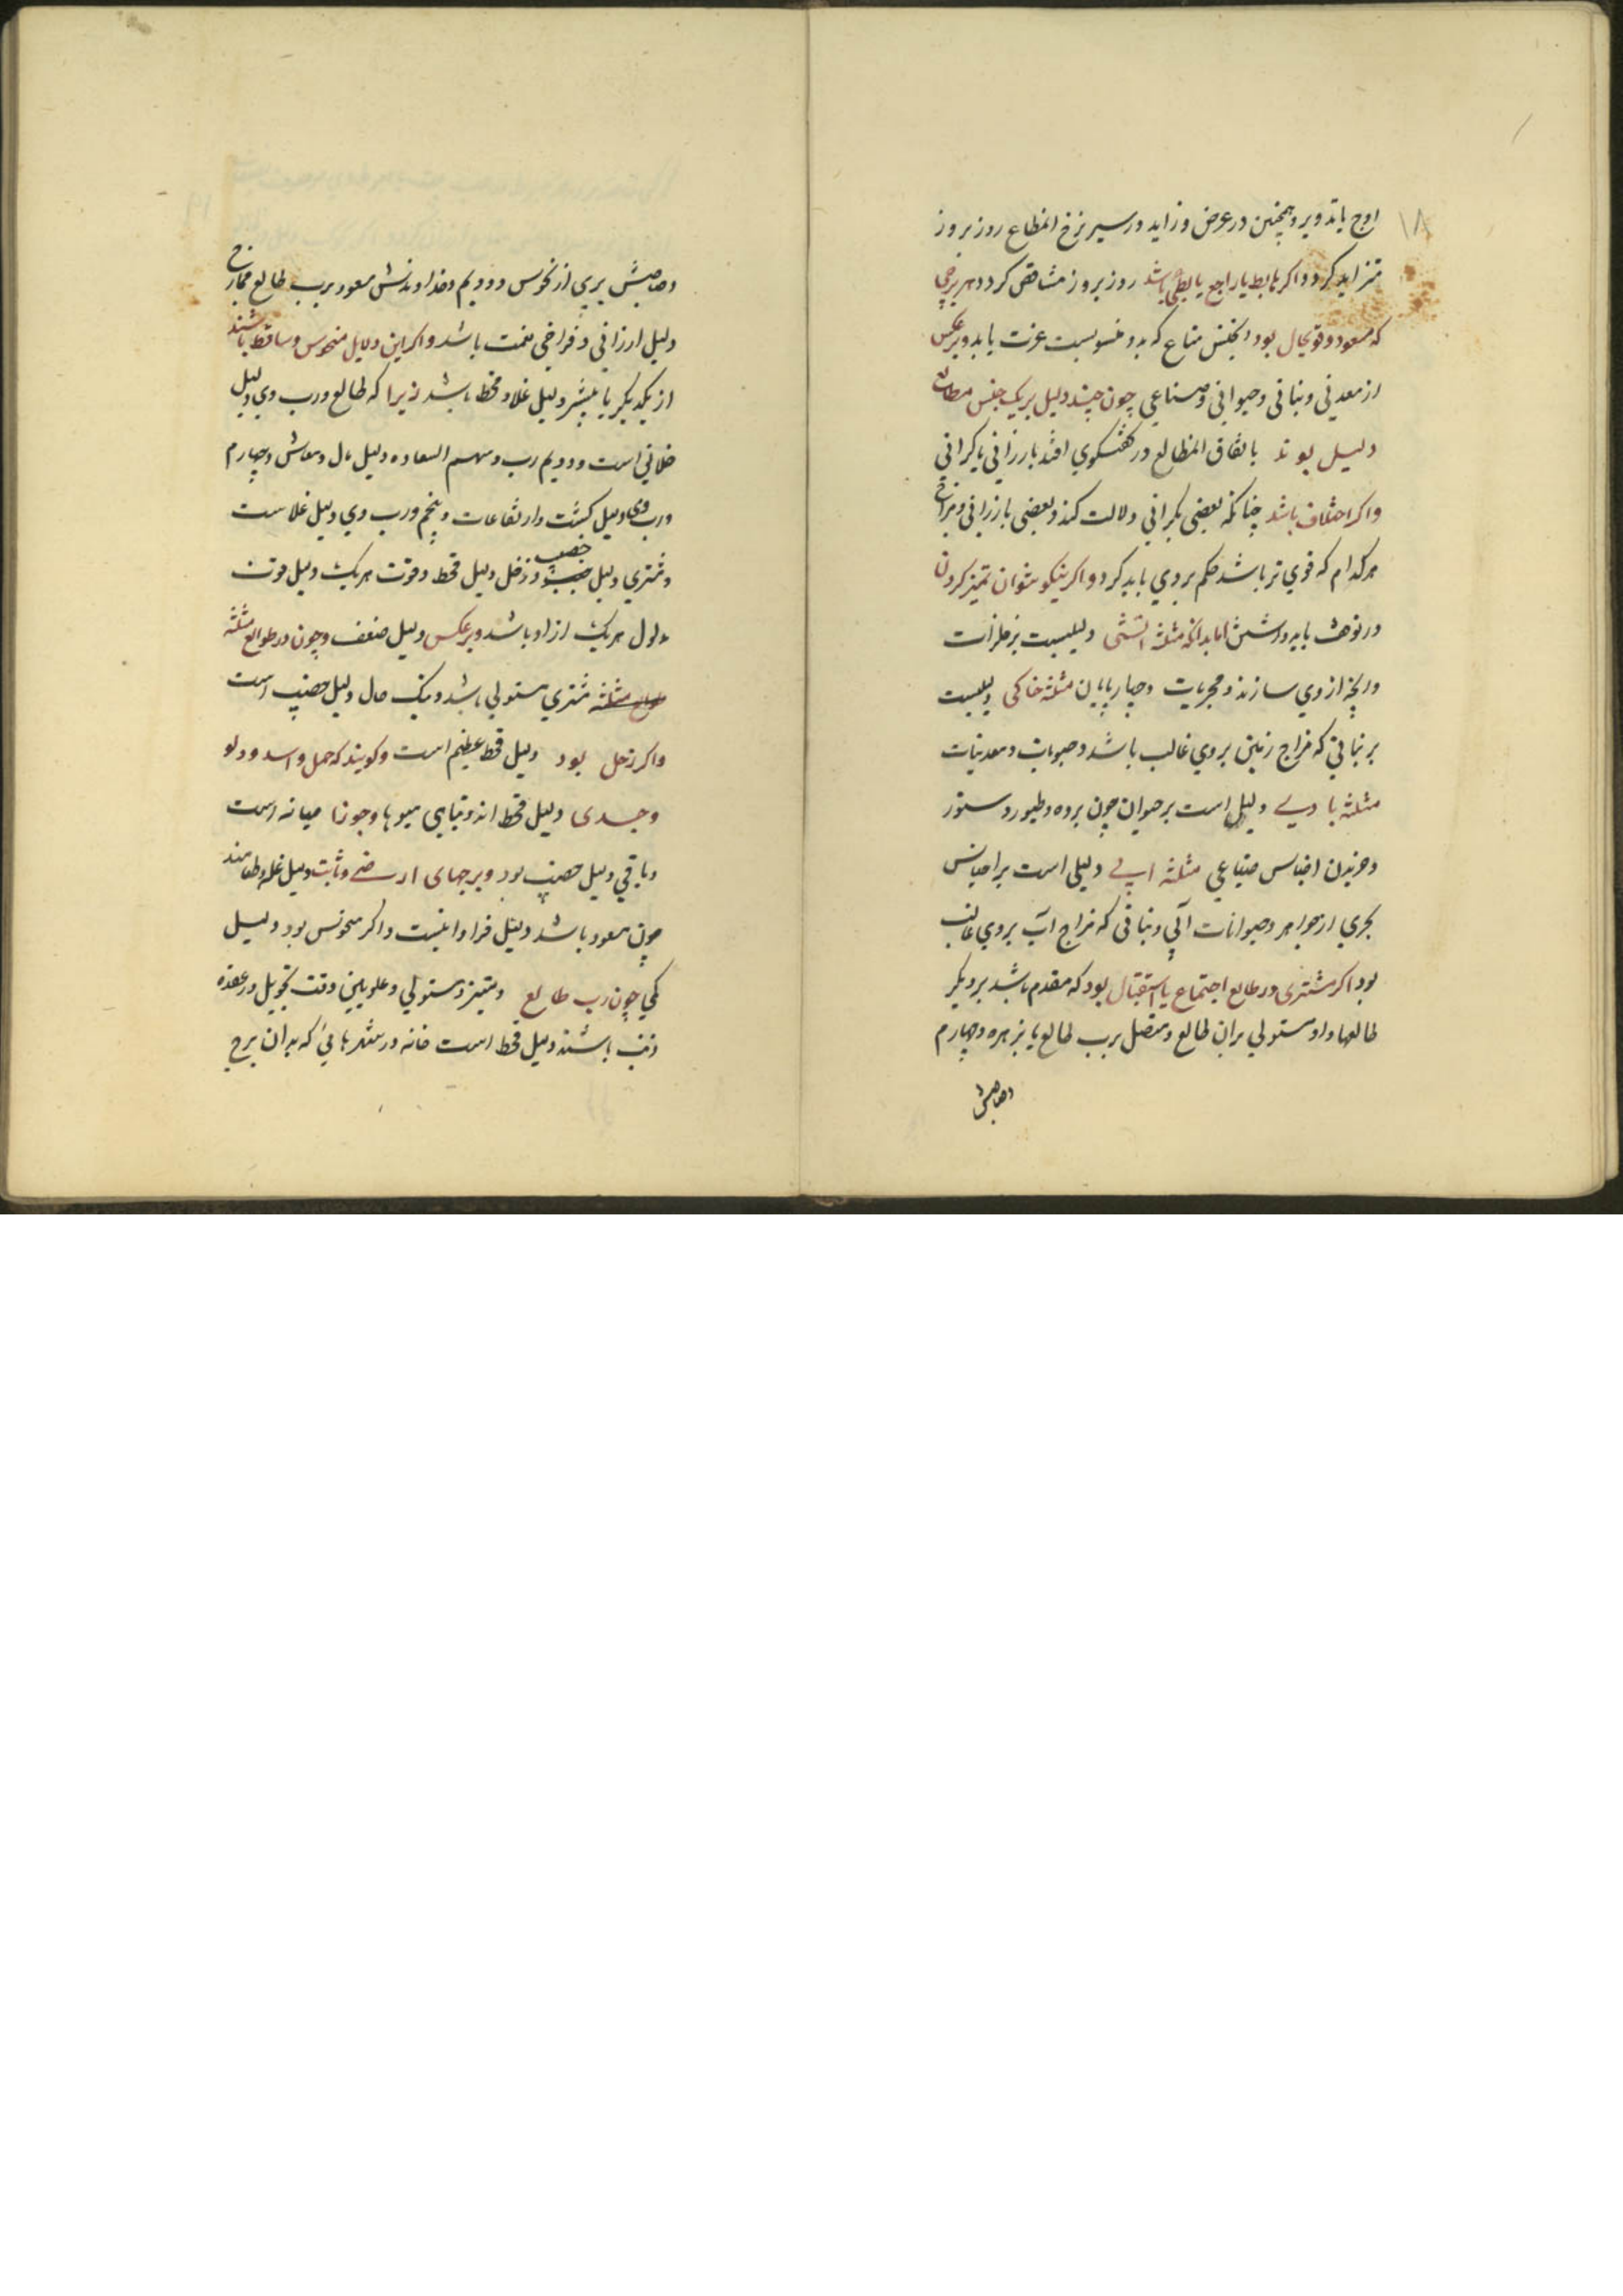 ۱۸
اوج یا تدویر و همچنین در عرض و زاید در سیر نرخ انمطاع روز بروز
تزاید کردد و اکر هابط یا راجع یا بطی باشد روز بروز متناقص کردد و هر برجی
که مسعود و قوی حال بود انجنس متاع که بدو منسوبست عزت یابد و برعکس
از معدنی و نباتی و حیوانی و صناعی چون چند دلیل بر یک جنس مطالع
دلیل بوند باتفاق المطالع در کفتکوی افتد بارزانی یا کرانی
و اکر اختلاف باشد چنانکه بعضی بکرانی دلالت کند و بعضی بارزانی و فراخی
هر کدام که قوی تر باشد حکم بر وی باید کرد و اکر نیکو نتوان تمیز کردن
در توقف باید داشتن اما بدانکه مثلثه اتشی دلیلیست بر فلزات
و رانچه از وی سازند و مجریات و چهارپایان مثلثه خاکی دلیلیست
بر نباتی که مزاج زمین بر وی غالب باشد و حبوبات و معدنیات
مثلثه بادی دلیل است بر حیوان چون برده و طیور و ستور
و خزیدن اجناس صناعی مثلثه ابی دلیلی است بر اجناس
بحری از جواهر و حیوانات آبی و نباتی که مزاج آب بر وی غالب
بود اکر مشتری در طالع اجتماع یا استقبال بود که مقدم باشد بر دیکر
طالعها و او مستولی بران طالع و متصل برب طالع یا بزهره و چهارم
وصاحبش
وصاحبش بری از نحوس و دویم و خداوندش مسعود برب طالع ممازج
دلیل ارزانی و فراخی نعمت باشد و اکر این دلایل منحوس و ساقط باشند
از یکدیکر یا بیشتر دلیل غلا و قحط باشد زیرا که طالع و رب وی دلیل
خلانی است و دویم رب و سهم السعاده دلیل مال و معاش و چهارم
و رب وی دلیل کشت و ارتفاعات و پنجم و رب وی دلیل غلاست
و مشتری دلیل خصب و زحل دلیل قحط و قوت هر یک دلیل قوت
مدلول هر یک از او باشد و برعکس دلیل ضعف و چون در طوالع مثلثه
مثلثه مشتری مستولی باشد و نیک حال دلیل خصب است
و اکر زحل بود دلیل قحط عظیم است و کویند که حمل و اسد و دلو
و جدی دلیل قحط اند و تباهی میوها و جوزا میانه است
و باقی دلیل خصب بود و برجهای ارضی و ثابت دلیل غله و طعامند
چون مسعود باشد دلیل فراوانیست و اکر منحوس بود دلیل
کمی چون رب طالع و مبتز و مستولی و علویین وقت تحویل در عقده
ذنب باشند دلیل قحط است خانه در شهرهائی که بدان برج